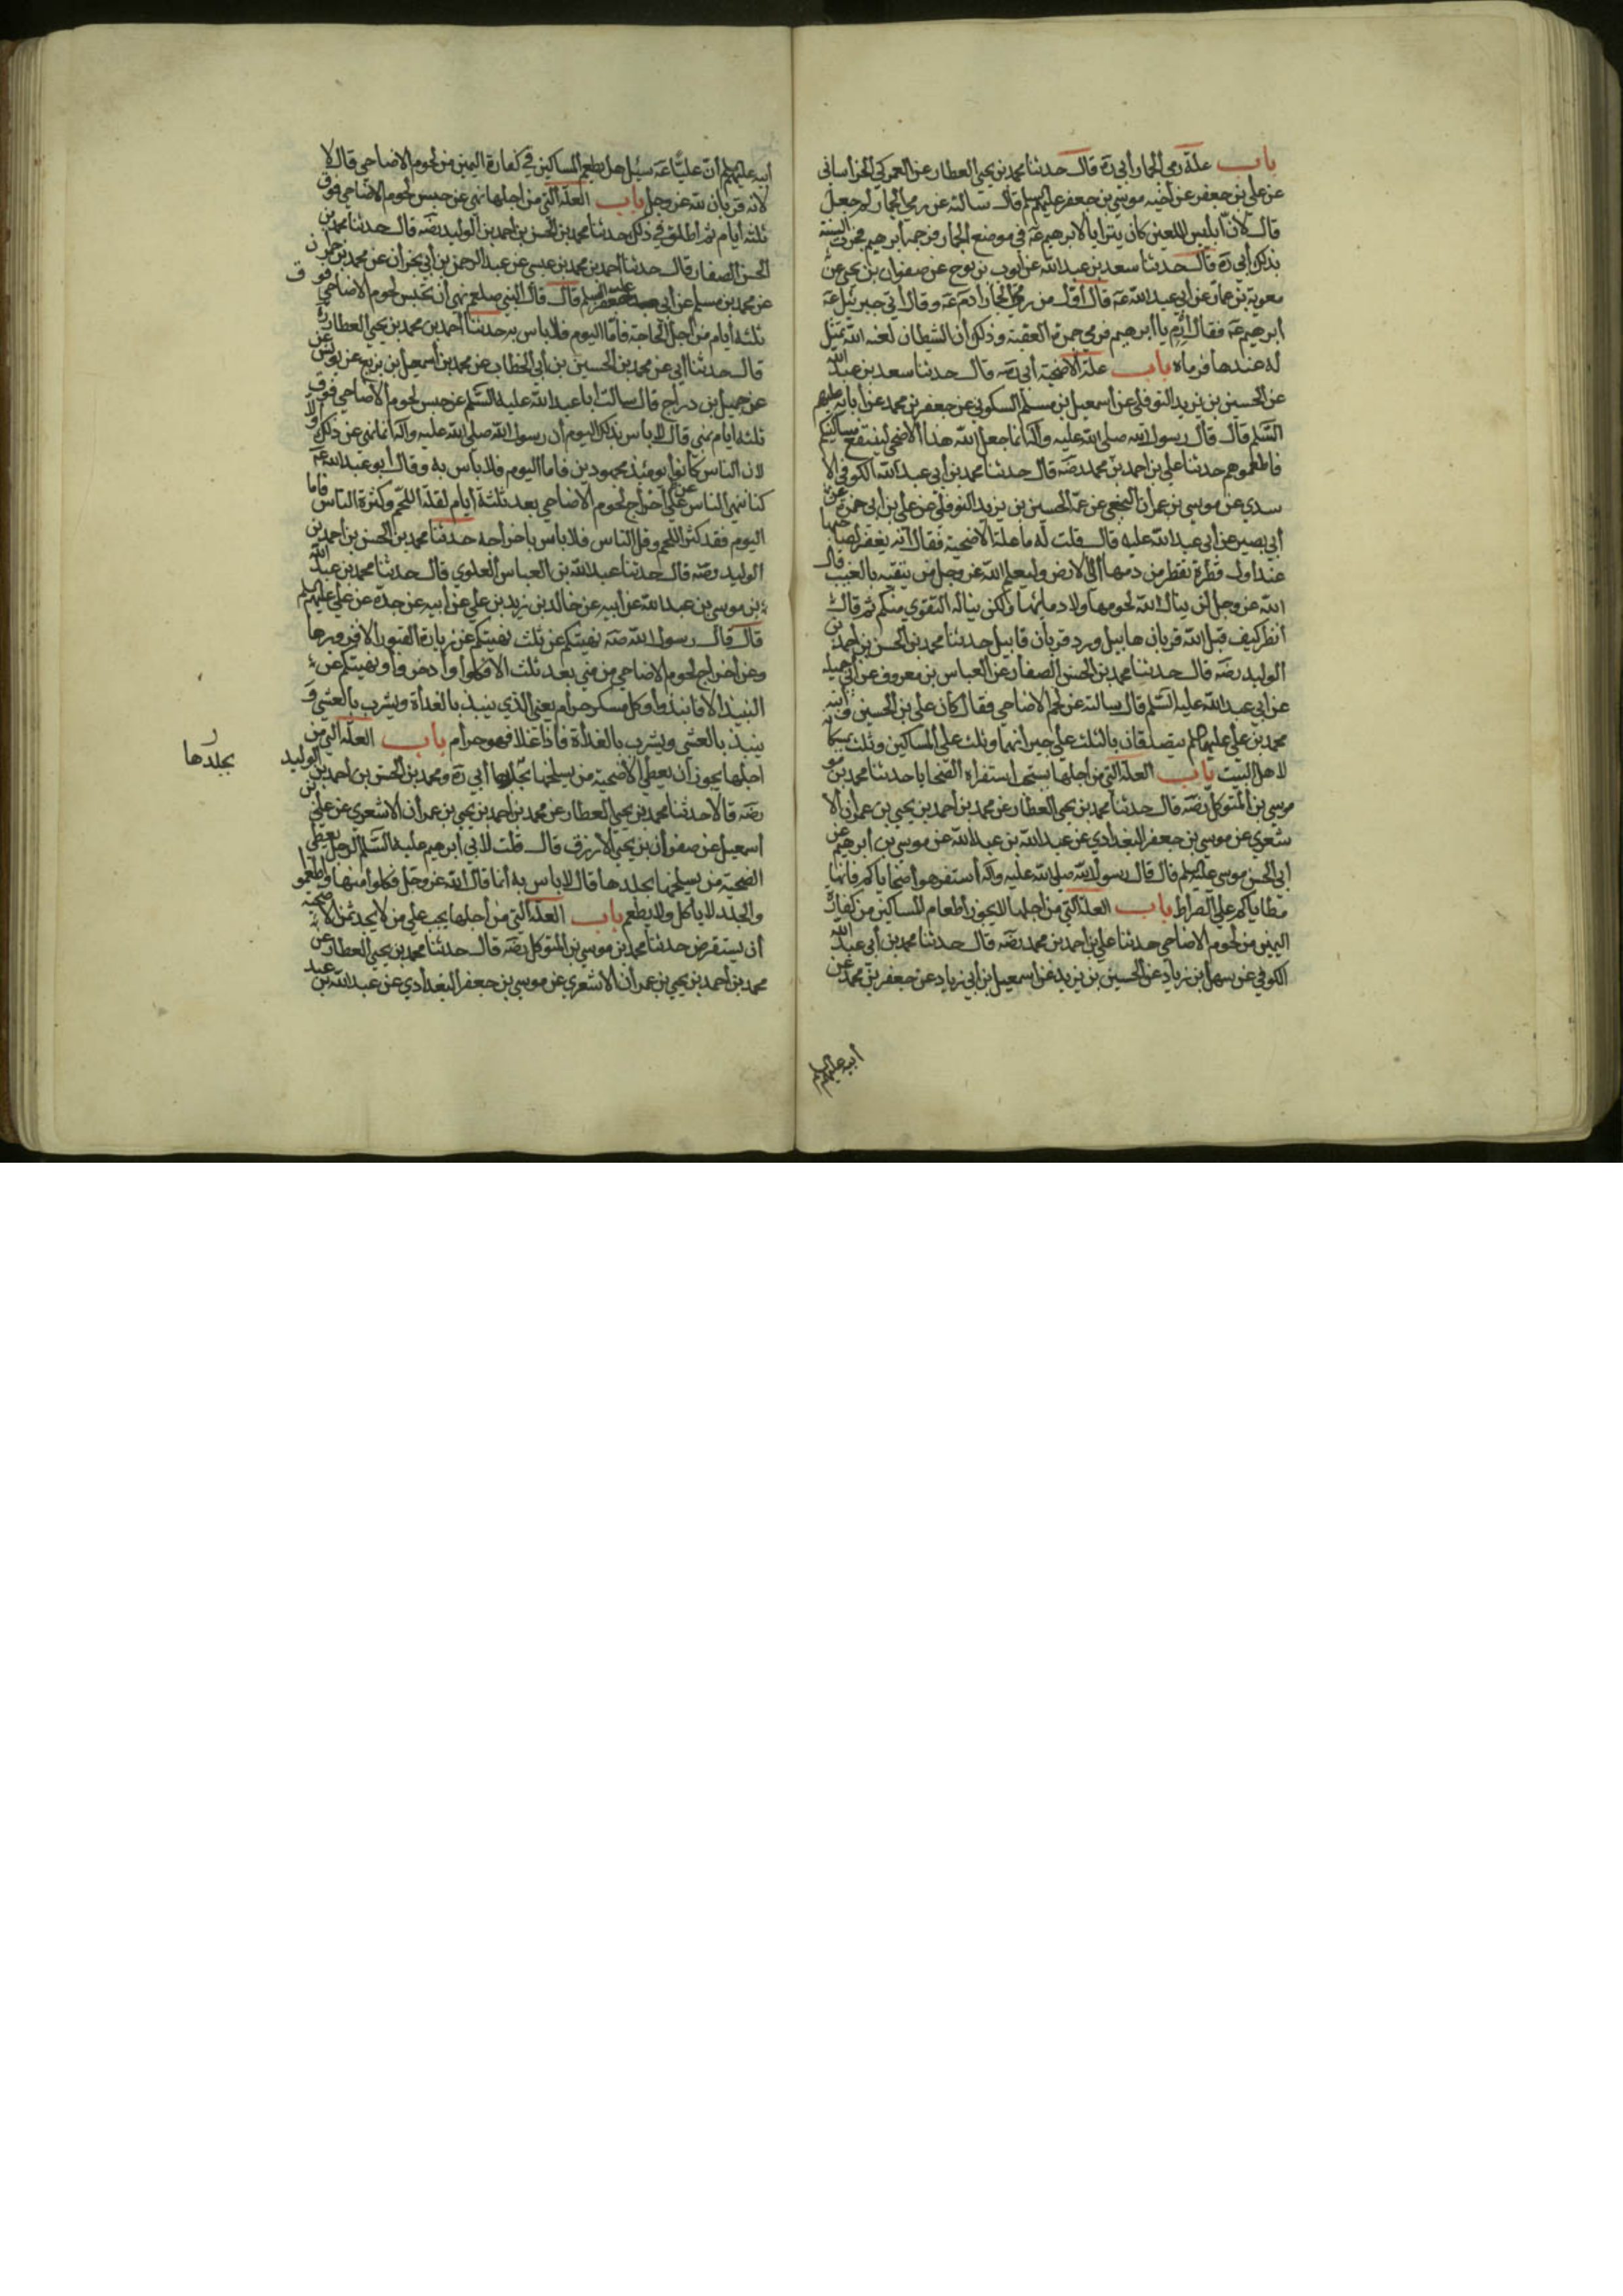 باب علة رمي الجمار أبي ره قال حدثنا محمد بن يحيى العطار عن العمركي الخراساني
عن علي بن جعفر عن أخيه موسى بن جعفر عليهم السلم قال سالته عن رمي الجمار لم جعل
قال لان ابليس اللعين كان يتراءيا لابرهيم عه في موضع الجمار فرجمه ابرهيم فجرت السنة
بذلك أبي ره قال حدثنا سعد بن عبد الله عن أيوب بن نوح عن صفوان بن يحيى عن
معوية بن عمار عن أبي عبد الله عه قال أول من رمى الجمار ادم عه وقال أتى جبرئيل عه
ابرهيم عه فقال أرم يا ابرهيم فرمى جمرة العقبة وذلك أن الشيطان لعنه الله تمثل
له عندها فرماه باب علة الاضحية أبي رضه قال حدثنا سعد بن عبد الله
عن الحسين بن يزيد النوفلي عن أسمعيل بن مسلم السكوني عن جعفر بن محمد عن أبائه عليهم
السلم قال قال رسول الله صلى الله عليه وآله انما جعل الله هذا الأضحى ليتسع مساكينكم
فاطعموهم حدثنا علي بن احمد بن محمد رضه قال حدثنا محمد بن أبي عبد الله الكوفي الا
سدي عن موسى بن عمران النخعي عن عمه الحسين بن يزيد النوفلي عن علي بن أبي حمزة عن
أبي بصير عن أبي عبد الله عليه قال قلت له ما علة الاضحية فقال انه يغفر لصاحبها
عند اول قطرة تقطر من دمها الى الارض وليعلم الله عز وجل من يتقيه بالغيب قال
الله عز وجل لن ينال الله لحومها ولا دماؤها ولكن يناله التقوى منكم ثم قال
أنظر كيف قبل الله قربان هابيل ورد قربان قابيل حدثنا محمد بن الحسن بن أحمد بن
الوليد رضه قال حدثنا محمد بن الحسن الصفار عن العباس بن معروف عن أبي جميله
عن أبي عبد الله عليه السلم قال سالته عن لحم الاضاحي فقال كان علي بن الحسين وابنه
محمد بن علي عليهما السلم يتصدقان بالثلث على جيرانهما وثلث على المساكين وثلث يمسكانه
لاهل البيت باب العلة التي من أجلها يستحب استفراه الضحايا حدثنا محمد بن مو
موسى بن المتوكل رضه قال حدثنا محمد بن يحيى العطار عن محمد بن أحمد بن يحيى بن عمران الا
شعري عن موسى بن جعفر البغدادي عن عبد الله بن عبد الله عن موسى بن ابرهيم عن
أبي الحسن موسى عليه السلم قال قال رسول الله صلى الله عليه وآله أستفرهوا ضحاياكم فانها
مطاياكم على الصراط باب العلة التي من اجلها لا يجوز أطعام المساكين من كفارة
اليمين من لحوم الاضاحي حدثنا علي بن احمد بن محمد رضه قال حدثنا محمد بن أبي عبد الله
الكوفي عن سهل بن زياد عن الحسين بن يزيد عن أسمعيل بن أبي زياد عن جعفر بن محمد عن
أبيه عليهم السلم
أبيه عليهم السلم أن عليا عه سئل هل يطعم المساكين في كفارة اليمين من لحوم الاضاحي قال لا
لانه قربان لله عز وجل باب العلة التي من اجلها نهى عن حبس لحوم الاضاحي فوق
ثلثه أيام ثم أطلق في ذلك حدثنا محمد بن الحسن بن احمد بن الوليد رضه قال حدثنا محمد بن
الحسن الصفار قال حدثنا أحمد بن محمد بن عيسى عن عبد الرحمن بن أبي نجران عن محمد بن حمران
عن محمد بن مسلم عن أبي جعفر عليه السلم قال قال النبي صلعم نهى أن تحبس لحوم الاضاحي فوق
ثلثه أيام من أجل الحاجة فأما اليوم فلا باس به حدثنا أحمد بن محمد بن يحيى العطار ره
قال حدثنا أبي عن محمد بن الحسين بن أبي الخطاب عن محمد بن أسمعيل بن بزيع عن يونس عن
عن جميل بن دراج قال سالت ابا عبد الله عليه السلم عن حبس لحوم الاضاحي فوق
ثلثه ايام بمنى قال لا باس بذلك اليوم أن رسول الله صلى الله عليه وآله انما نهى عن ذلك أولا
لان الناس كانوا يومئذ مجهودين فاما اليوم فلا باس به وقال أبو عبد الله عه
كنا ننهى الناس عن أخراج لحوم الاضاحي بعد ثلثة أيام لقلة اللحم وكثرة الناس فاما
اليوم فقد كثر اللحم وقل الناس فلا باس باخراجه حدثنا محمد بن الحسن بن احمد بن
الوليد رضه قال حدثنا عبد الله بن العباس العلوي قال حدثنا محمد بن عبد الله
بن موسى بن عبد الله عن ابيه عن خالد بن زيد بن علي عن أبيه عن جده عن علي عليهم السلم
قال قال رسول الله صه نهيتكم عن ثلث نهيتكم عن زيارة القبور الا فزوروها
وعن اخراج لحوم الاضاحي من منى بعد ثلث الا فكلوا وأدخروا ونهيتكم عن
النبيذ الا فانبذوا وكل مسكر حرام يعني الذي ينبذ بالغداة ويشرب بالعشي و
ينبذ بالعشي ويشرب بالغداة فاذا غلا فهو حرام باب العلة التي من
اجلها يجوز أن يعطي الأضحية من يسلخها بجلدها أبي ره ومحمد بن الحسن بن احمد بن الوليد
بجلدها
رضه قالا حدثنا محمد بن يحيى العطار عن محمد بن أحمد بن يحيى بن عمران الاشعري عن علي بن
أسمعيل عن صفوان بن يحيى الازرق قال قلت لابي أبرهيم عليه السلم الرجل يعطي
الضحية من يسلخها بجلدها قال لا باس به أنما قال الله عز وجل فكلوا منها واطعموا
والجلد لا ياكل ولا يطعم باب العلة التي من أجلها يجب على من لا يجد ثمن الاضحية
أن يستقرض حدثنا محمد بن موسى بن المتوكل رضه قال حدثنا محمد بن يحيى العطار عن
محمد بن أحمد بن يحيى بن عمران الاشعري عن موسى بن جعفر البغدادي عن عبد الله بن عبد